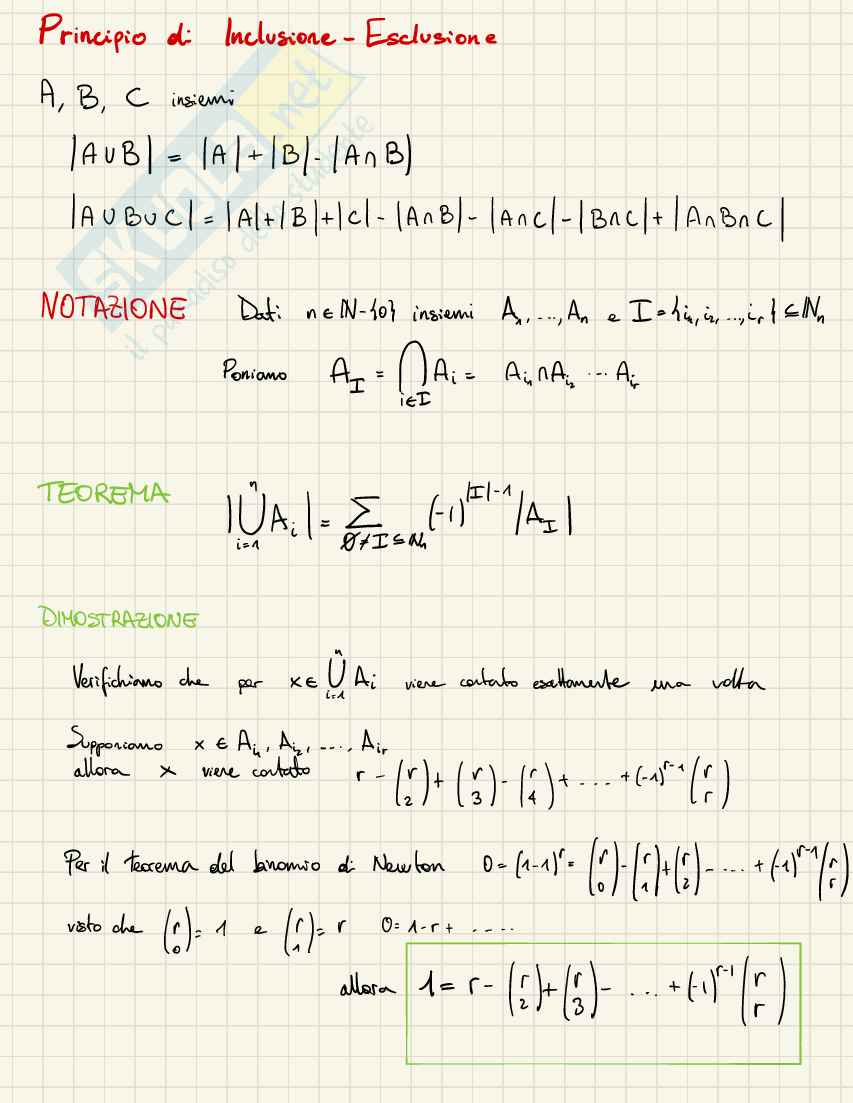 Principio di Inclusione - Esclusione
A, B, C insiemi
|A∪B| = |A|+|B|-|A∩B|
|A∪B∪C| = |A|+|B|+|C|-|A∩B|-|A∩C|-|B∩C|+|A∩B∩C|
NOTAZIONE Dati n∈ℕ-{0} insiemi A₁,...,Aₙ e I={i₁,i₂,...,iᵣ}⊆ℕₙ
Poniamo A_I = ⋂_{i∈I} Aᵢ = A_{i₁}∩A_{i₂} ... A_{iᵣ}
TEOREMA |⋃_{i=1}^{n} Aᵢ| = ∑_{∅≠I⊆ℕₙ} (-1)^{|I|-1} |A_I|
DIMOSTRAZIONE
Verifichiamo che per x∈ ⋃_{i=1}^{n} Aᵢ viene contato esattamente una volta
Supponiamo x ∈ A_{i₁}, A_{i₂}, ..., A_{iᵣ}
allora x viene contato r - (r 2) + (r 3) - (r 4) + .... + (-1)^{r-1} (r r)
Per il teorema del binomio di Newton 0 = (1-1)^r = (r 0) - (r 1) + (r 2) - .... + (-1)^{r-1} (r r)
visto che (r 0) = 1 e (r 1) = r 0 = 1 - r + .....
allora 1 = r - (r 2) + (r 3) - ... + (-1)^{r-1} (r r)
SKUOLA.net
il paradiso dello studente